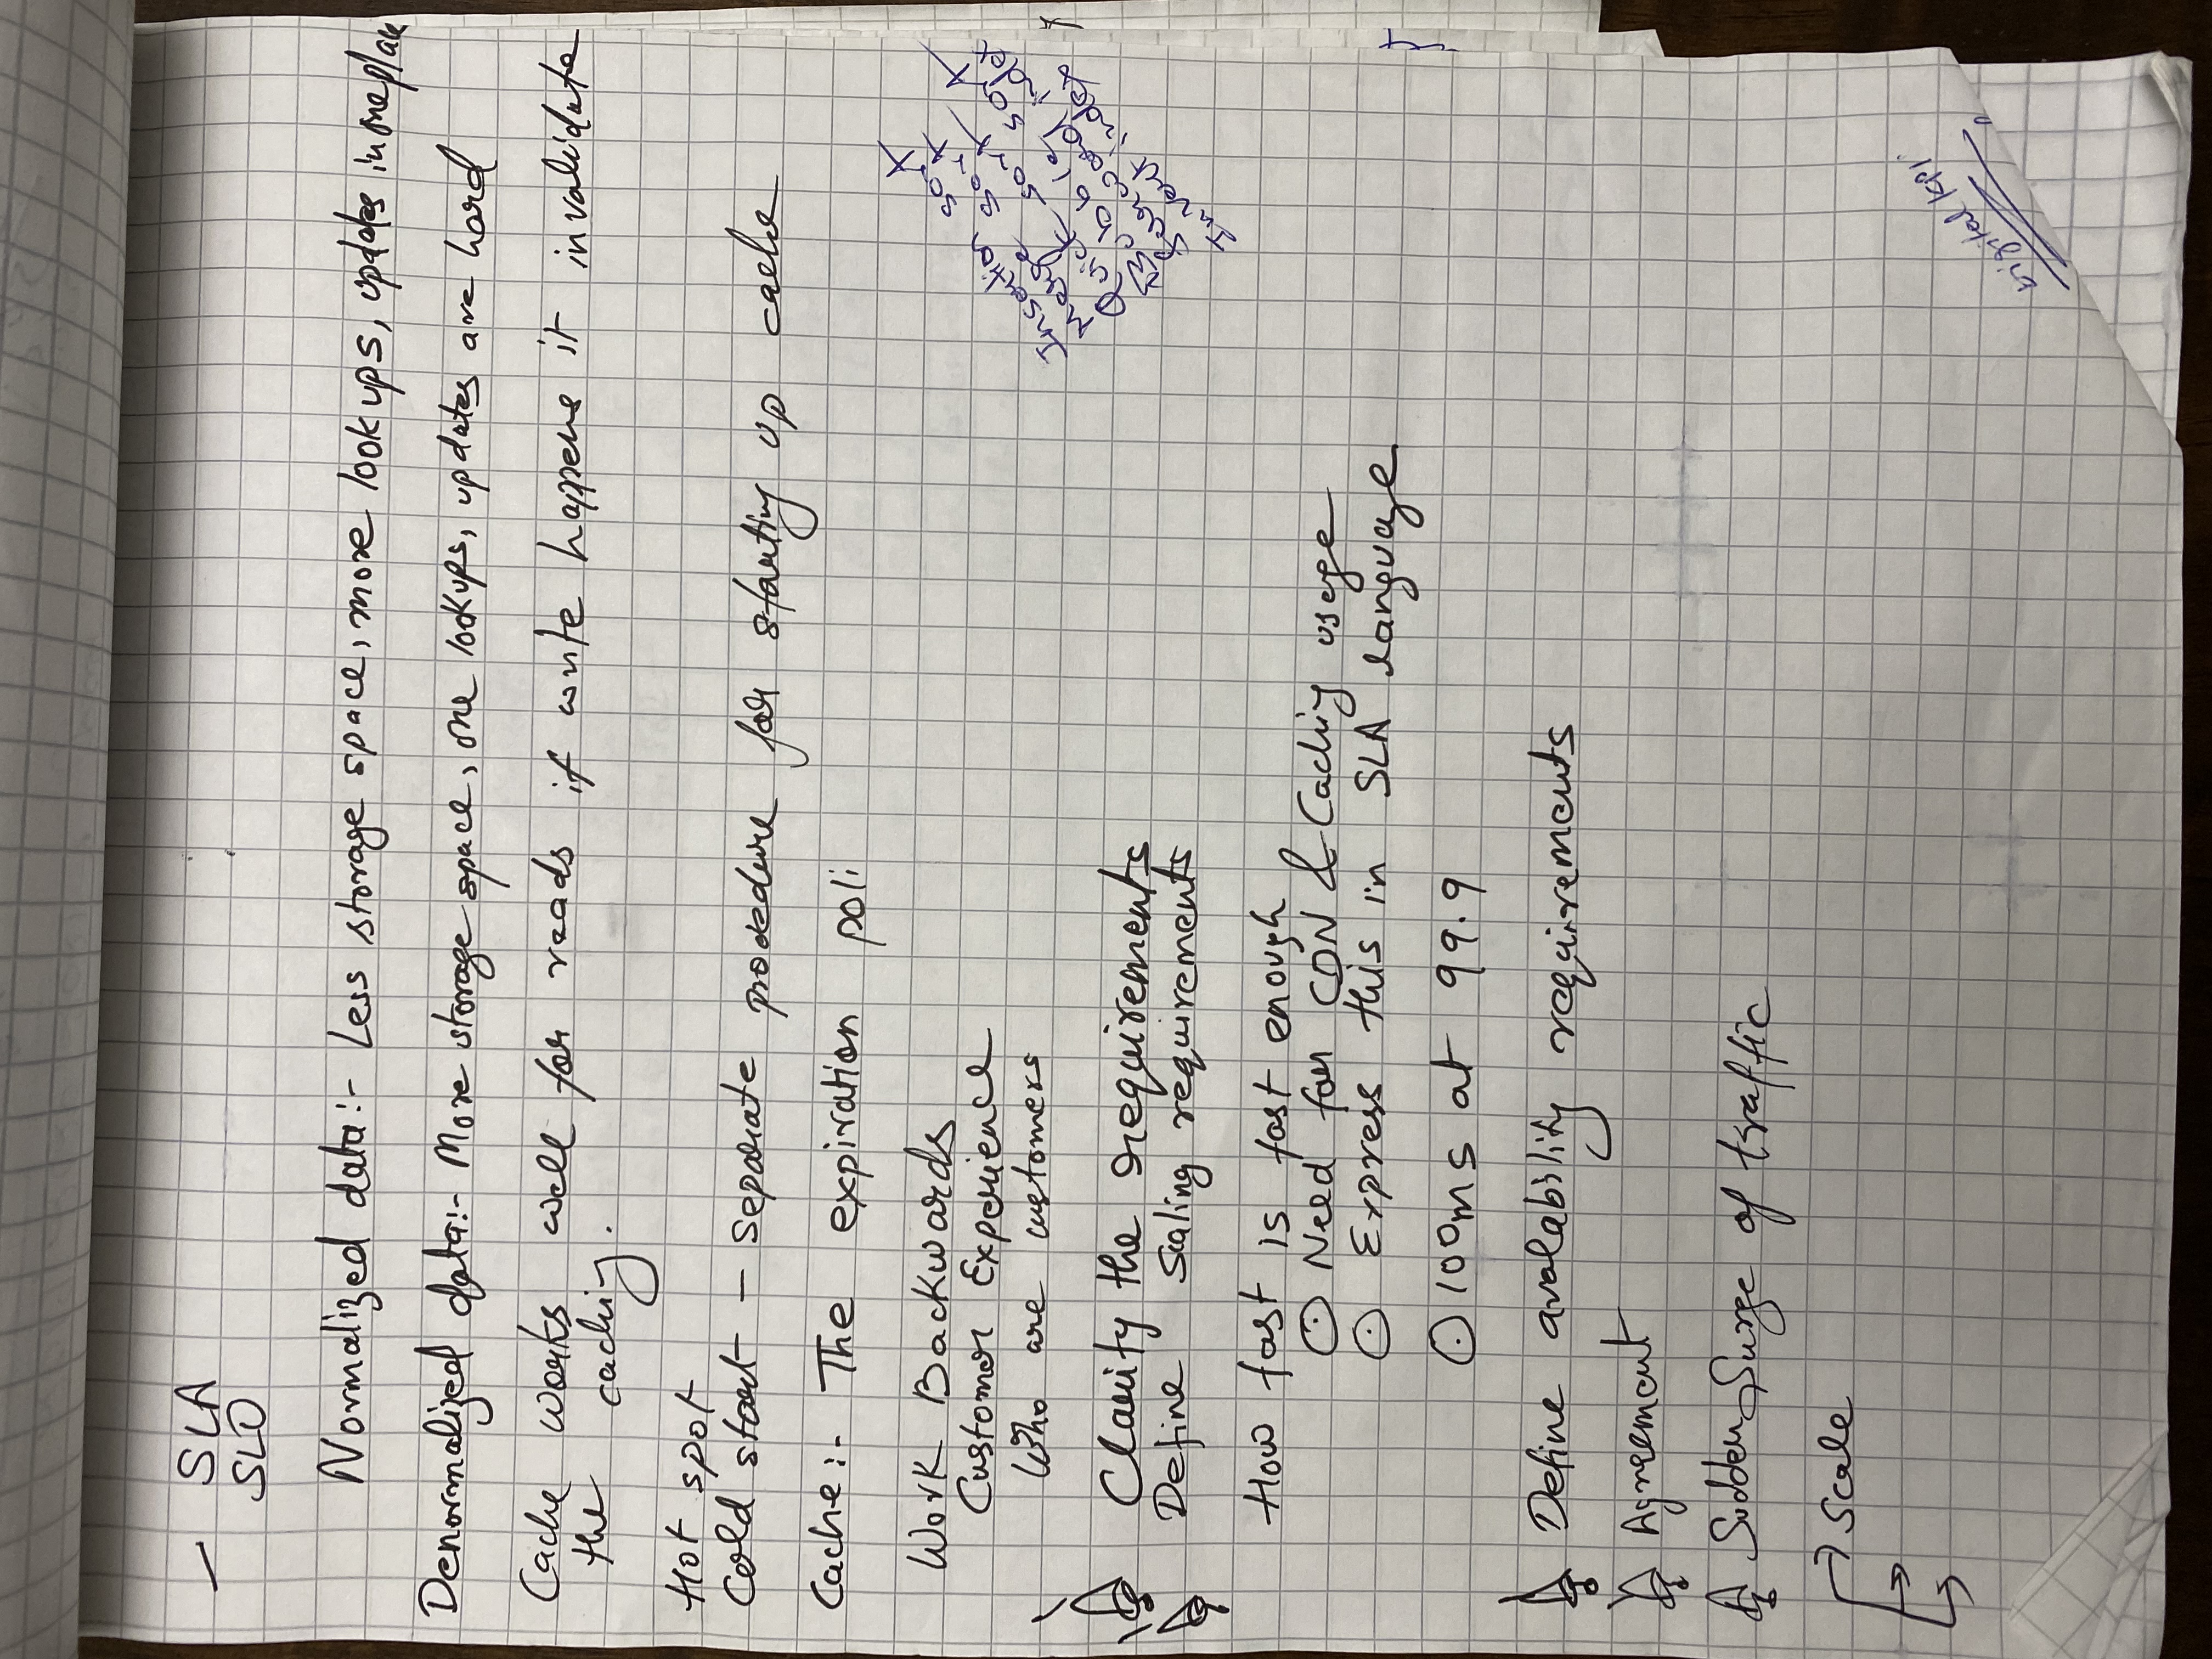 - SLA
SLO
Normalized data:- Less storage space, more lookups, updates in oneplace
Denormalized data:- More storage space, one lookups, updates are hard
Cache works well for reads if write happens it invalidate
the caching.
Hot spot
Cold start - separate procedure for starting up cache
Cache:- The expiration poli
Work Backwards
Customer Experience
Who are customers
Clarity the requirements
Define Scaling requirements
How fast is fast enough
Need for CDN & Caching usage
Express this in SLA language
100ms at 99.9
Define avalability requirements
Agreement
Sudden Surge of traffic
Scale
Insertion sort
Merge sort
Quick sort
Bubble sort
forward index
Invert index
Digital KPI